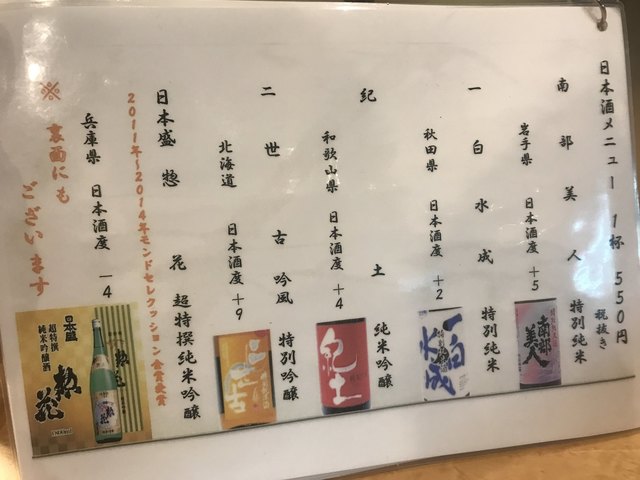 日本酒メニュー 1杯 550円 税抜き
南部美人 特別純米
岩手県 日本酒度 +5
一白水成 特別純米
秋田県 日本酒度 +2
紀土 純米吟醸
和歌山県 日本酒度 +4
二世古 吟風 特別吟醸
北海道 日本酒度 +9
日本盛 惣花 超特撰純米吟醸
2011年~2014年モンドセレクション金賞受賞
兵庫県 日本酒度 -4
※裏面にも
ございます
南部美人
一白水成
紀土
二世古
日本盛
超特撰
純米吟醸酒
惣花